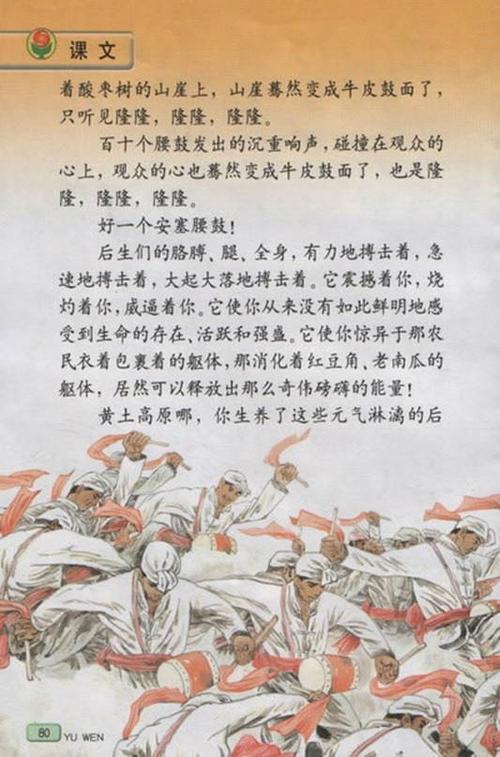 课文
着酸枣树的山崖上，山崖蓦然变成牛皮鼓面了，
只听见隆隆，隆隆，隆隆。
百十个腰鼓发出的沉重响声，碰撞在观众的
心上，观众的心也蓦然变成牛皮鼓面了，也是隆
隆，隆隆，隆隆。
好一个安塞腰鼓！
后生们的胳膊、腿、全身，有力地搏击着，急
速地搏击着，大起大落地搏击着。它震撼着你，烧
灼着你，威逼着你。它使你从来没有如此鲜明地感
受到生命的存在、活跃和强盛。它使你惊异于那农
民衣着包裹着的躯体，那消化着红豆角、老南瓜的
躯体，居然可以释放出那么奇伟磅礴的能量！
黄土高原哪，你生养了这些元气淋漓的后
80
YU WEN